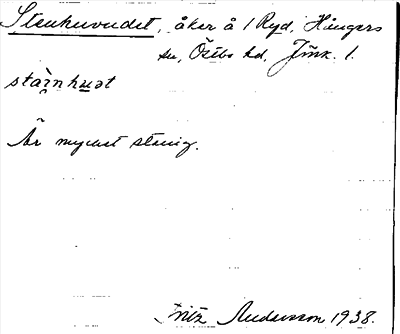 Stenhuvudet, åker å 1 Ryd, Hångers
sn, Östbo hd. Jönk. l.
stàinhu̲ət
Är mycket stenig.
Fritz Andersson 1938.